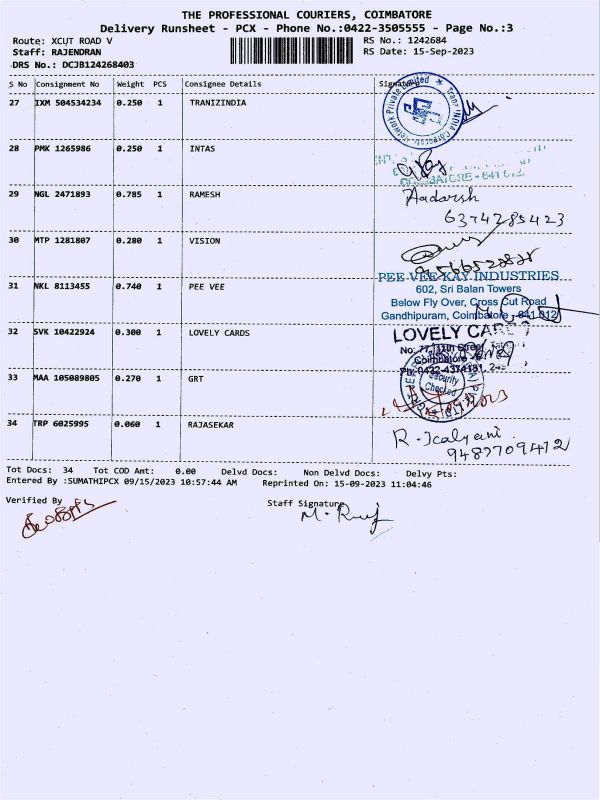 THE PROFESSIONAL COURIERS, COIMBATORE
Delivery Runsheet - PCX - Phone No.:0422-3505555 - Page No.:3
Route: XCUT ROAD V RS No.: 1242684
Staff: RAJENDRAN RS Date: 15-Sep-2023
DRS No.: DCJB124268403
S No Consignment No Weight PCS Consignee Details Signature
27 IXM 504534234 0.250 1 TRANIZINDIA
28 PMK 1265986 0.250 1 INTAS
COIMBATORE - 641 012
29 NGL 2471893 0.785 1 RAMESH Aadarsh
6374285423
30 MTP 1281807 0.280 1 VISION
9566520828
31 NKL 8113455 0.740 1 PEE VEE PEE VEE KAY INDUSTRIES
602, Sri Balan Towers
Below Fly Over, Cross Cut Road
Gandhipuram, Coimbatore - 641 012
32 SVK 10422924 0.300 1 LOVELY CARDS LOVELY CARDS
No: 77, 11th Street
Coimbatore
Ph: 0422-4374181
33 MAA 105089805 0.270 1 GRT Security
Checked
34 TRP 6025995 0.060 1 RAJASEKAR R. Kalyani
9487709472
Tot Docs: 34 Tot COD Amt: 0.00 Delvd Docs: Non Delvd Docs: Delvy Pts:
Entered By :SUMATHIPCX 09/15/2023 10:57:44 AM Reprinted On: 15-09-2023 11:04:46
Verified By Staff Signature